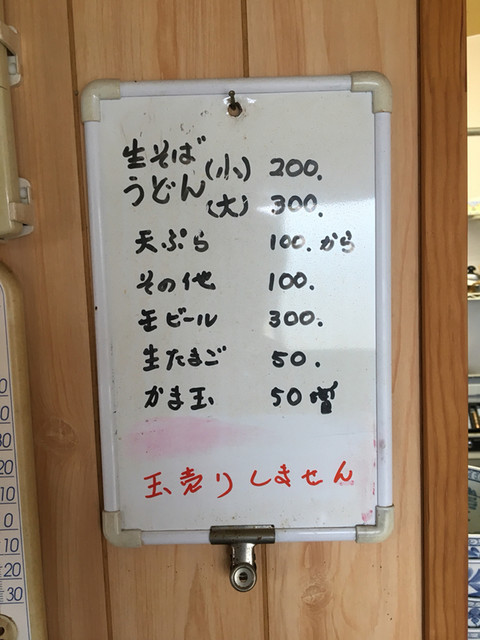 生そば
うどん
(小) 200.
(大) 300.
天ぷら 100.から
その他 100.
缶ビール 300.
生たまご 50.
かま玉 50増
玉売りしません
0
30
20
10
0
10
20
30